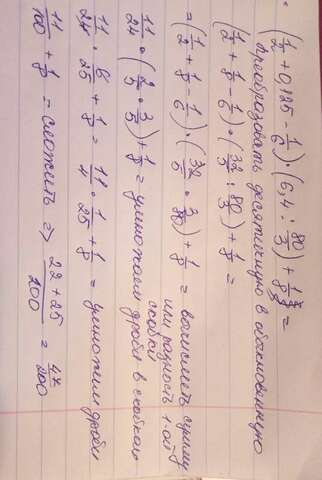 (1/2 + 0,125 - 1/6) · (6,4 : 80/3) + 1/8 =
Преобразовать десятичную в обыкновенную
(1/2 + 1/8 - 1/6) · (32/5 : 80/3) + 1/8 =
= (1/2 + 1/8 - 1/6) · (32/5 · 3/80) + 1/8 = вычислить сумму
или разность 1-ой
скобки
11/24 · (2/5 · 3/5) + 1/8 = умножаем дроби в скобках
11/24 · 6/25 + 1/8 = 11/4 · 1/25 + 1/8 = умножим дроби
11/100 + 1/8 = сложить => 22+25/200 = 47/200